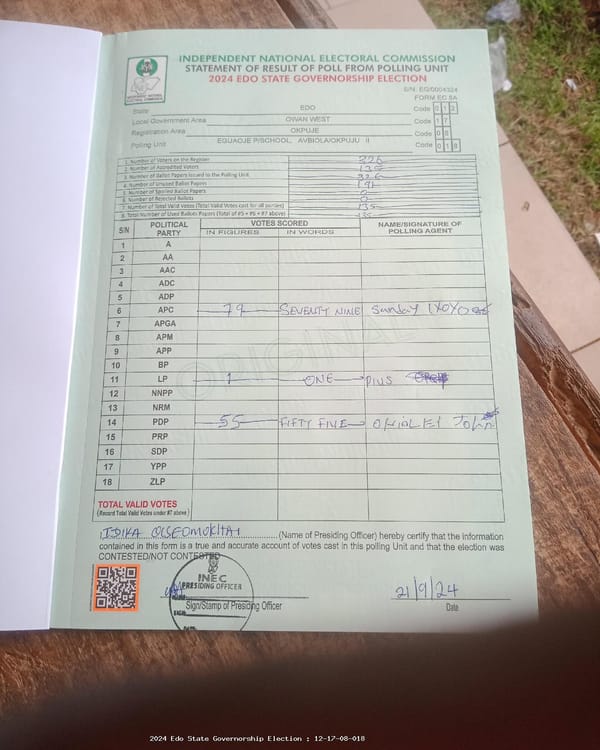 INDEPENDENT NATIONAL ELECTORAL COMMISSION
STATEMENT OF RESULT OF POLL FROM POLLING UNIT
2024 EDO STATE GOVERNORSHIP ELECTION
S/N: EG/0004324
FORM EC 8A
State EDO Code 0 1 2
Local Government Area OWAN WEST Code 1 7
Registration Area OKPUJE Code 0 8
Polling Unit EGUAOJE P/SCHOOL, AVBIOLA/OKPUJU II Code 0 1 8
1. Number of Voters on the Register 326
2. Number of Accredited Voters 135
3. Number of Ballot Papers Issued to the Polling Unit 326
4. Number of Unused Ballot Papers 191
5. Number of Spoiled Ballot Papers
6. Number of Rejected Ballots 0
7. Number of Total Valid Votes (Total Valid Votes cast for all parties) 135
8. Total Number of Used Ballots Papers (Total of #5 + #6 + #7 above) 135
S/N POLITICAL PARTY VOTES SCORED IN FIGURES IN WORDS NAME/SIGNATURE OF POLLING AGENT
1 A
2 AA
3 AAC
4 ADC
5 ADP
6 APC 79 SEVENTY NINE Sunday
7 APGA
8 APM
9 APP
10 BP
11 LP 1 ONE pius
12 NNPP
13 NRM
14 PDP 55 FIFTY FIVE John
15 PRP
16 SDP
17 YPP
18 ZLP
TOTAL VALID VOTES
(Record Total Valid Votes under #7 above)
I (Name of Presiding Officer) hereby certify that the information
contained in this form is a true and accurate account of votes cast in this polling Unit and that the election was
CONTESTED/NOT CONTESTED
INEC
PRESIDING OFFICER
21/9/24
Sign/Stamp of Presiding Officer Date
2024 Edo State Governorship Election : 12-17-08-018